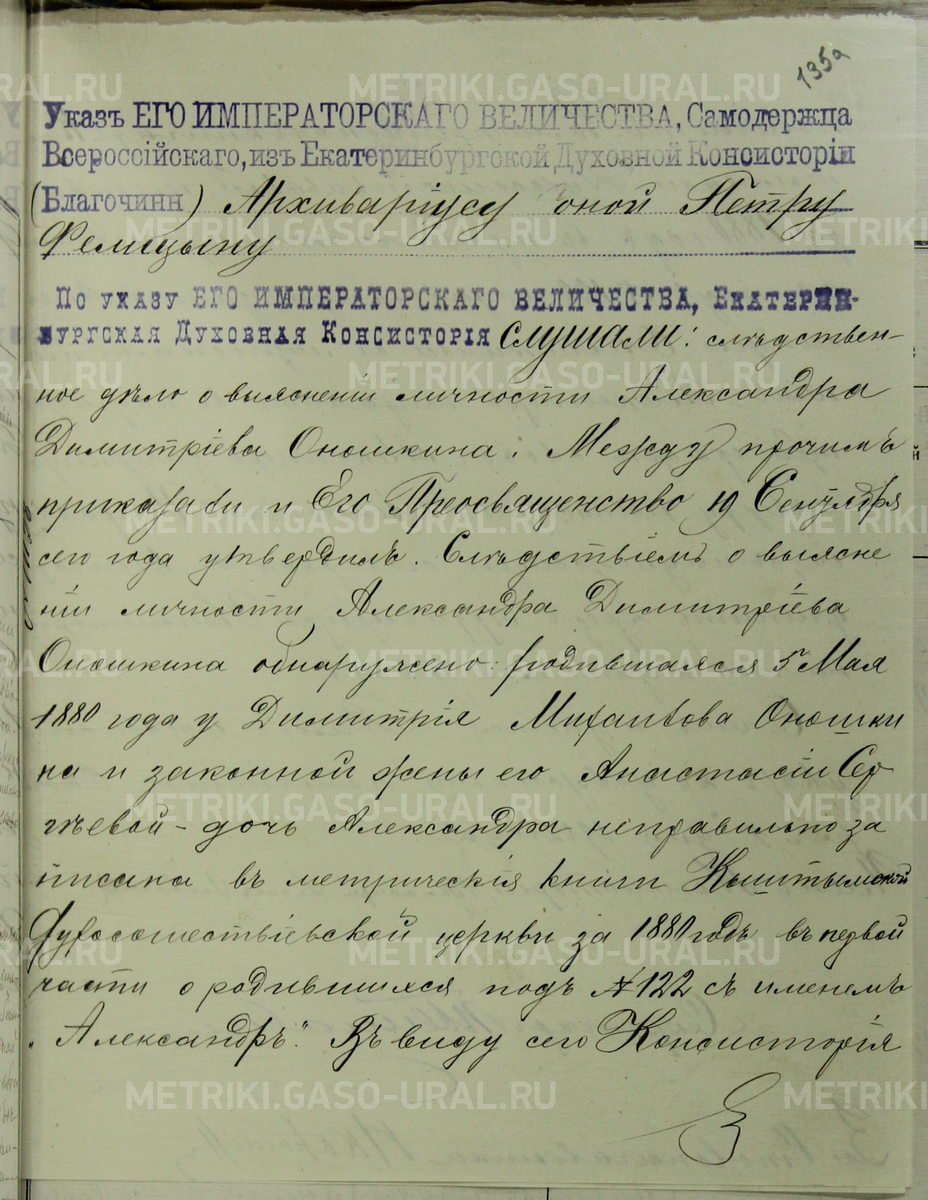 135а
Указъ ЕГО ИМПЕРАТОРСКАГО ВЕЛИЧЕСТВА, Самодержца
Всероссійскаго, изъ Екатеринбургской Духовной Консисторіи
(Благочинн ) Архиваріусу оной Петру
Фелицыну
По указу ЕГО ИМПЕРАТОРСКАГО ВЕЛИЧЕСТВА, Екатерин-
бургская Духовная Консисторія слушали: слѣдствен-
ное дѣло о выясненіи личности Александра
Димитріева Оношкина. Между прочимъ
приказали и Его Преосвященство 19 Сентября
сего года утвердилъ. Слѣдствіемъ о выясне
ніи личности Александра Димитріева
Оношкина обнаружено: родившаяся 5 Мая
1880 года у Димитрія Михаилова Оношки
на и законной жены его Анастасіи Сер
гѣевой - дочь Александра неправильно за
писана въ метрическія книги Кыштымской
Духосошествіевской церкви за 1880 годъ въ первой
части о родившихся подъ № 122 съ именемъ
"Александръ". Въ виду сего Консисторія
METRIKI.GASO-URAL.RU